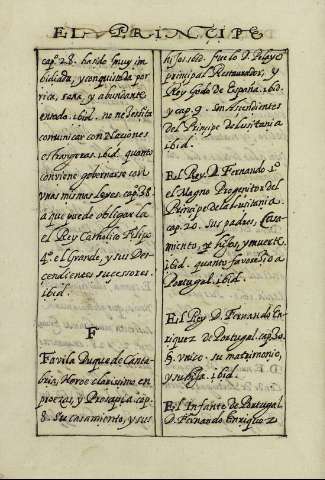 EL PRINCIPE
cap. 28. hando muy im
bidiada, y conquistada por
rica, sana, y abundante
ibid. no necesita
comunicar con Naciones
estrangeras. ibid. quanto
conviene gobernarse con
unas mismas leyes. cap. 38.
a que puede obligar la
el Rey Catholico Felipe
4º el grande, y sus Des-
cendientes sucessores.
ibid.
F
Favila Duque de Canta-
bria, Heroe clarissimo en
proezas, y Prosapia cap.
8. Su casamiento, y sus
hijos. ibid. fue lo D. Pelayo
principal Restaurador, y
Rey Godo de España. ibid.
y cap. 9. son Ascendientes
del Principe de Lusitania
ibid.
El Rey D. Fernando 1º
el Magno Progenitor del
Principe de la Lusitania.
cap. 20. sus padres, casa-
miento, e hijos, y muerte
ibid. quanto favorecio a
Portugal. ibid.
El Rey D. Fernando En-
riquez de Portugal. cap. 30.
§. unico. su matrimonio,
y su hija. ibid.
El Infante de Portugal
D. Fernando Enriquez